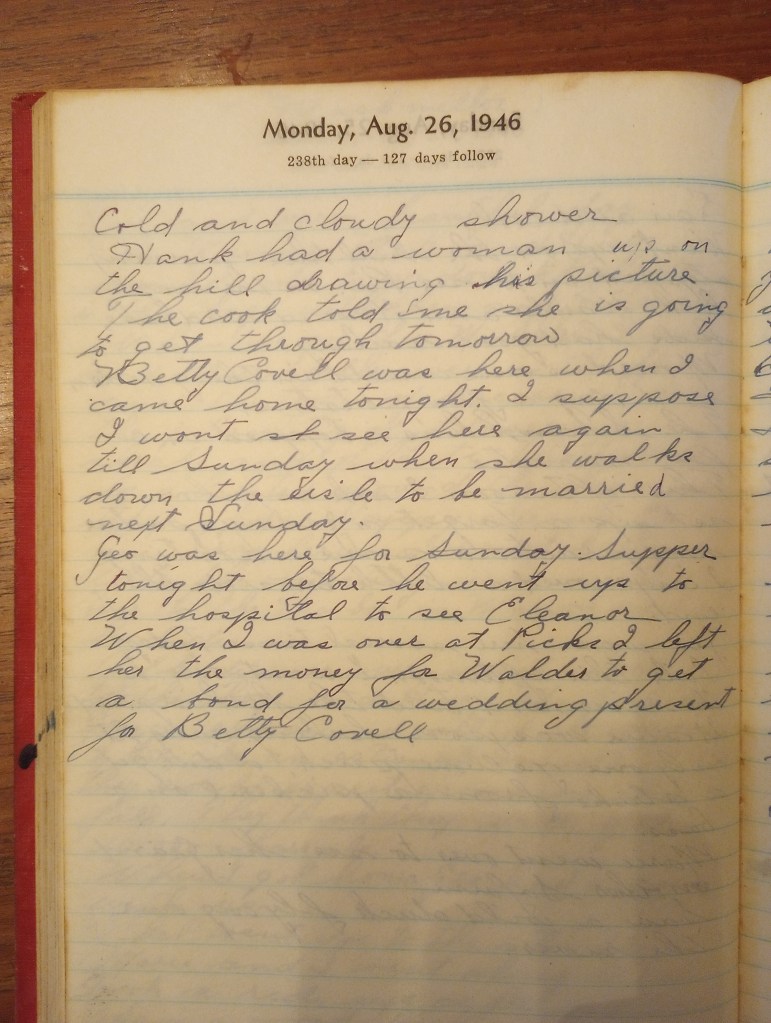 Monday, Aug. 26, 1946
238th day — 127 days follow
Cold and cloudy shower
Hank had a woman up on
the hill drawing his picture
The cook told me she is going
to get through tomorrow
Betty Covell was here when I
came home tonight. I suppose
I wont st see here again
till Sunday when she walks
down the to be married
next Sunday.
Geo was here for Sunday. Supper
tonight before he went up to
the hospital to see Eleanor
When I was over at Picks I left
her the money for to get
a bond for a wedding present
for Betty Covell